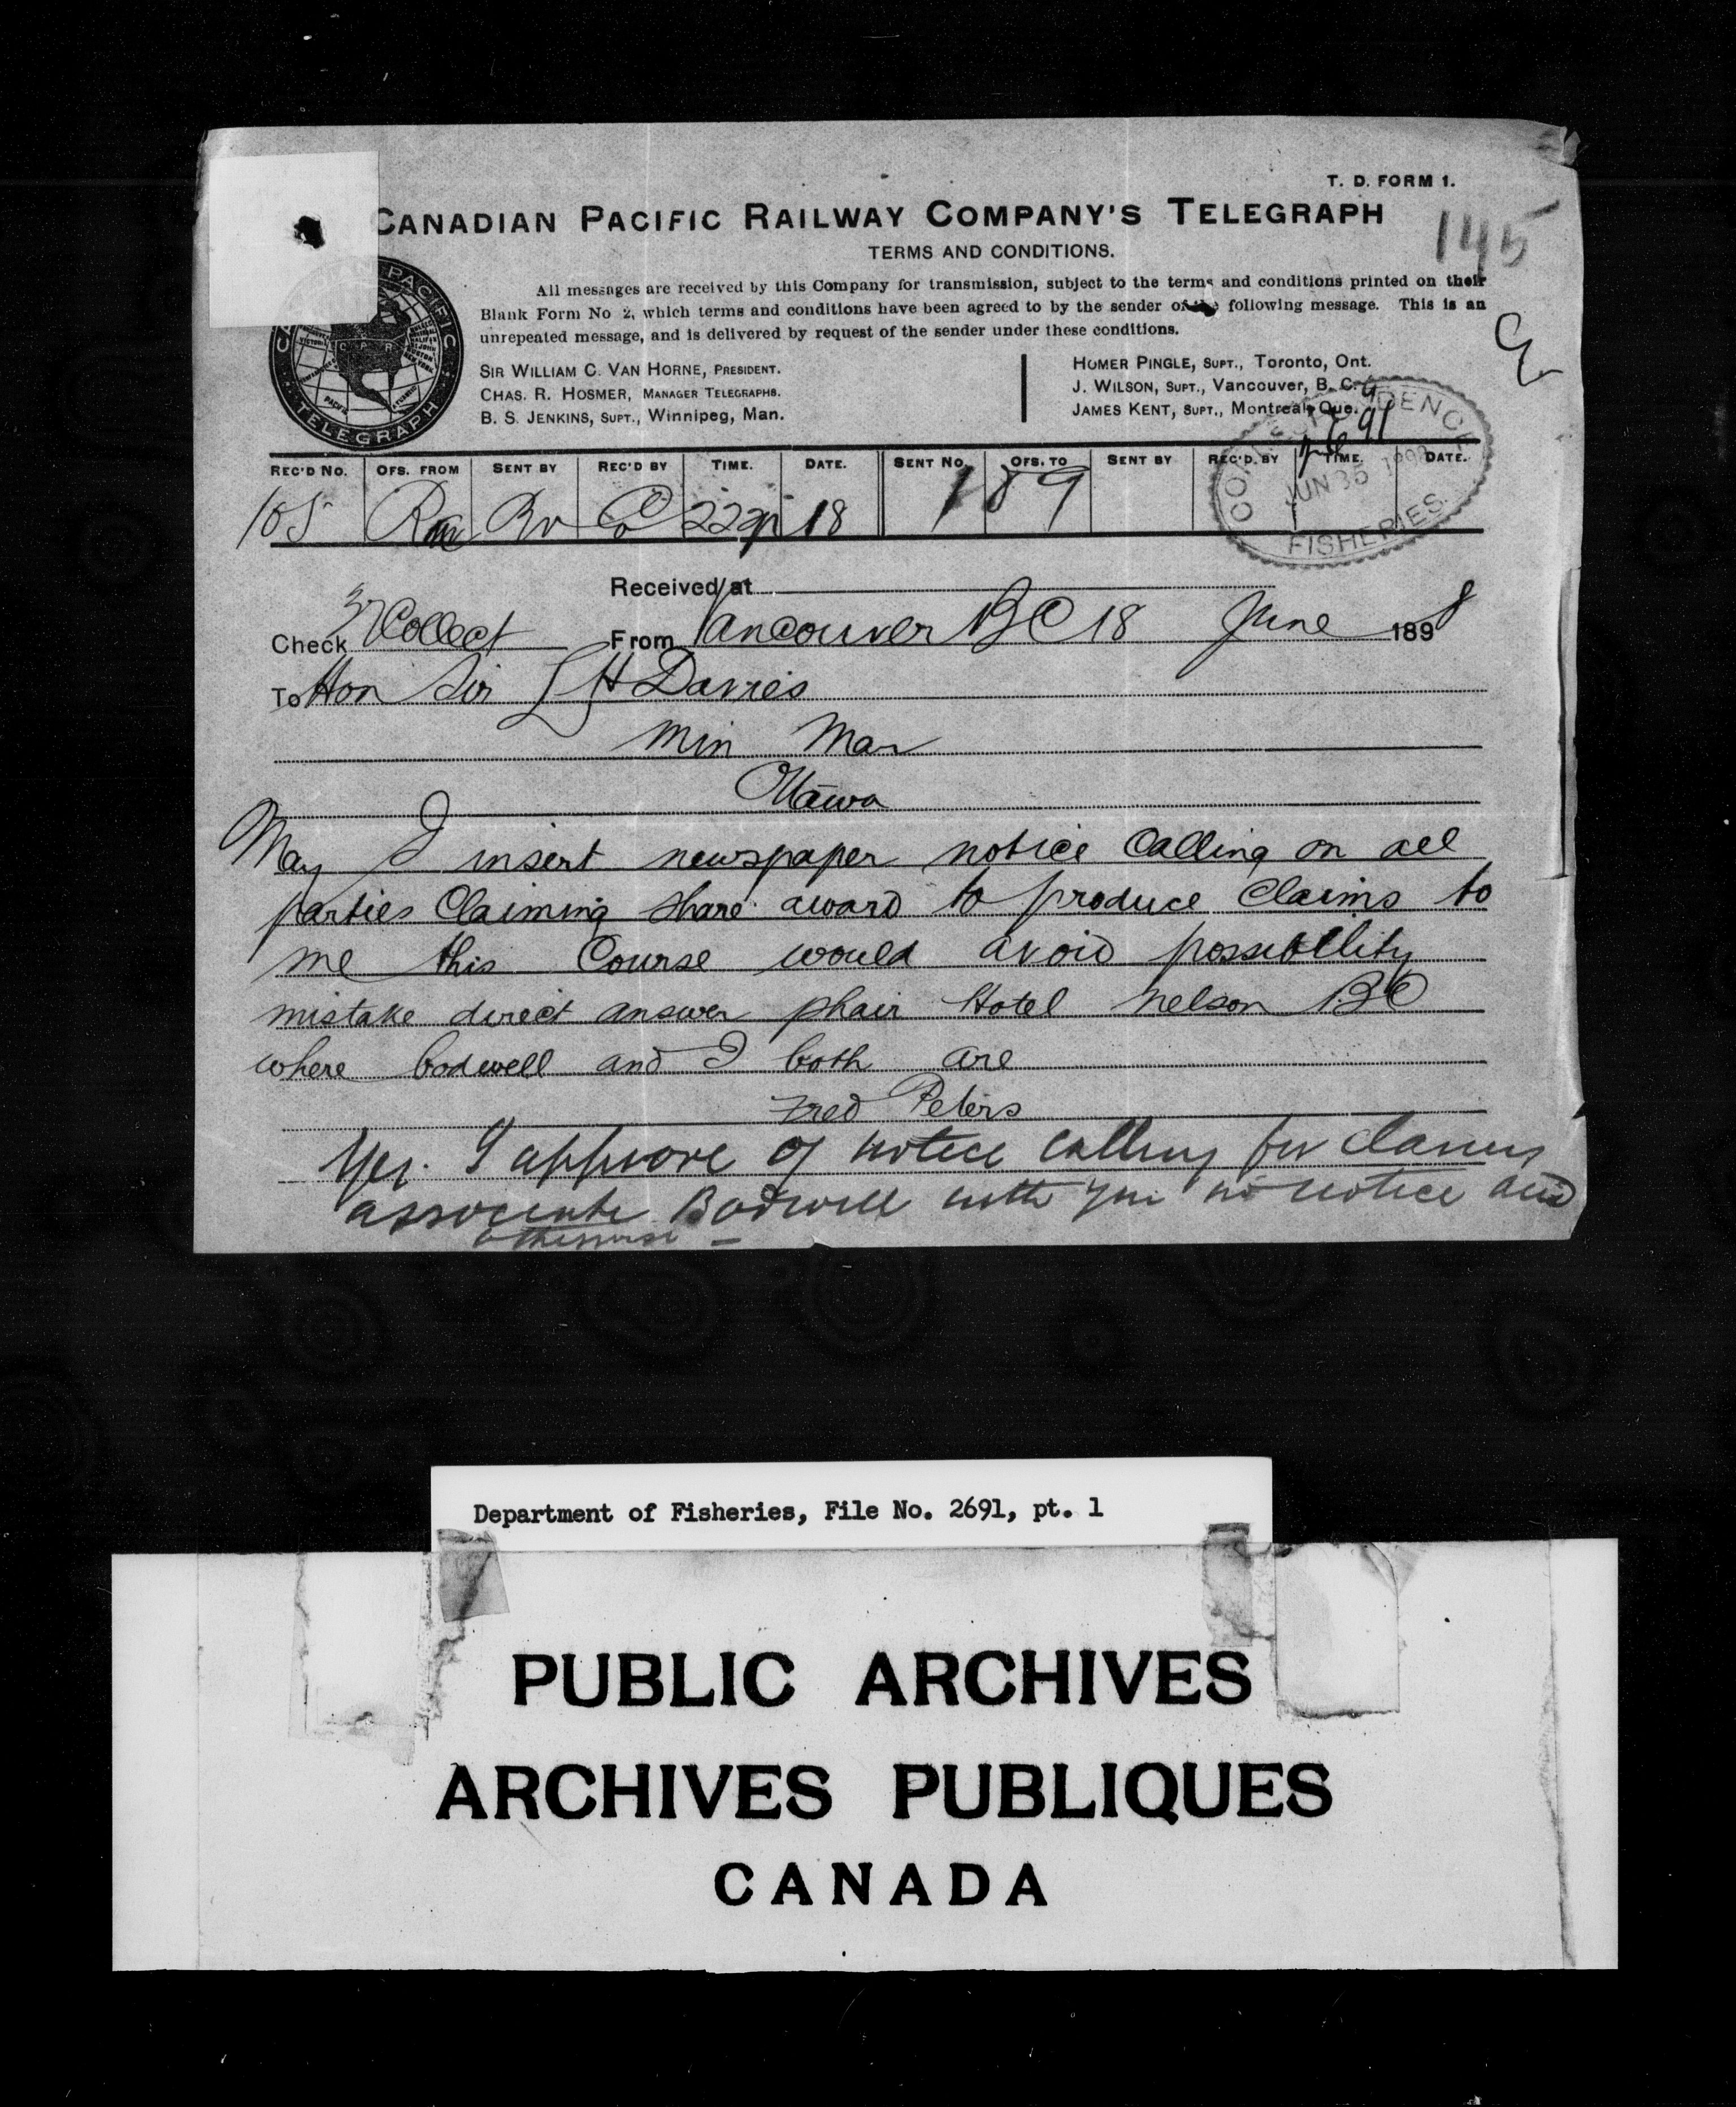 T. D. FORM 1.
CANADIAN PACIFIC RAILWAY COMPANY'S TELEGRAPH
145
TERMS AND CONDITIONS.
All messages are received by this Company for transmission, subject to the terms and conditions printed on their
Blank Form No 2, which terms and conditions have been agreed to by the sender of the following message. This is an
unrepeated message, and is delivered by request of the sender under these conditions.
SIR WILLIAM C. VAN HORNE, PRESIDENT.
CHAS. R. HOSMER, MANAGER TELEGRAPHS.
B. S. JENKINS, SUPT., Winnipeg, Man.
HOMER PINGLE, SUPT., Toronto, Ont.
J. WILSON, SUPT., Vancouver, B. C.
JAMES KENT, SUPT., Montreal, Que.
PACIFIC
C P R
TELEGRAPH
REC'D NO. OFS. FROM SENT BY REC'D BY TIME. DATE. SENT NO. OFS. TO SENT BY REC'D. BY TIME. DATE.
105 18 189
FISHERIES
Received at
Check Collect From Vancouver BC 18 June 1898
To Hon Sir L H Davies
Min Mar
Ottawa
May I insert newspaper notice Calling on all
parties Claiming share award to produce Claims to
me this Course would avoid possibility
mistake direct answer phair Hotel nelson BC
where bodwell and I both are
Fred Peters
Yes. I approve of notice calling for claims
associate Bodwell with you in notice and
otherwise —
Department of Fisheries, File No. 2691, pt. 1
PUBLIC ARCHIVES
ARCHIVES PUBLIQUES
CANADA